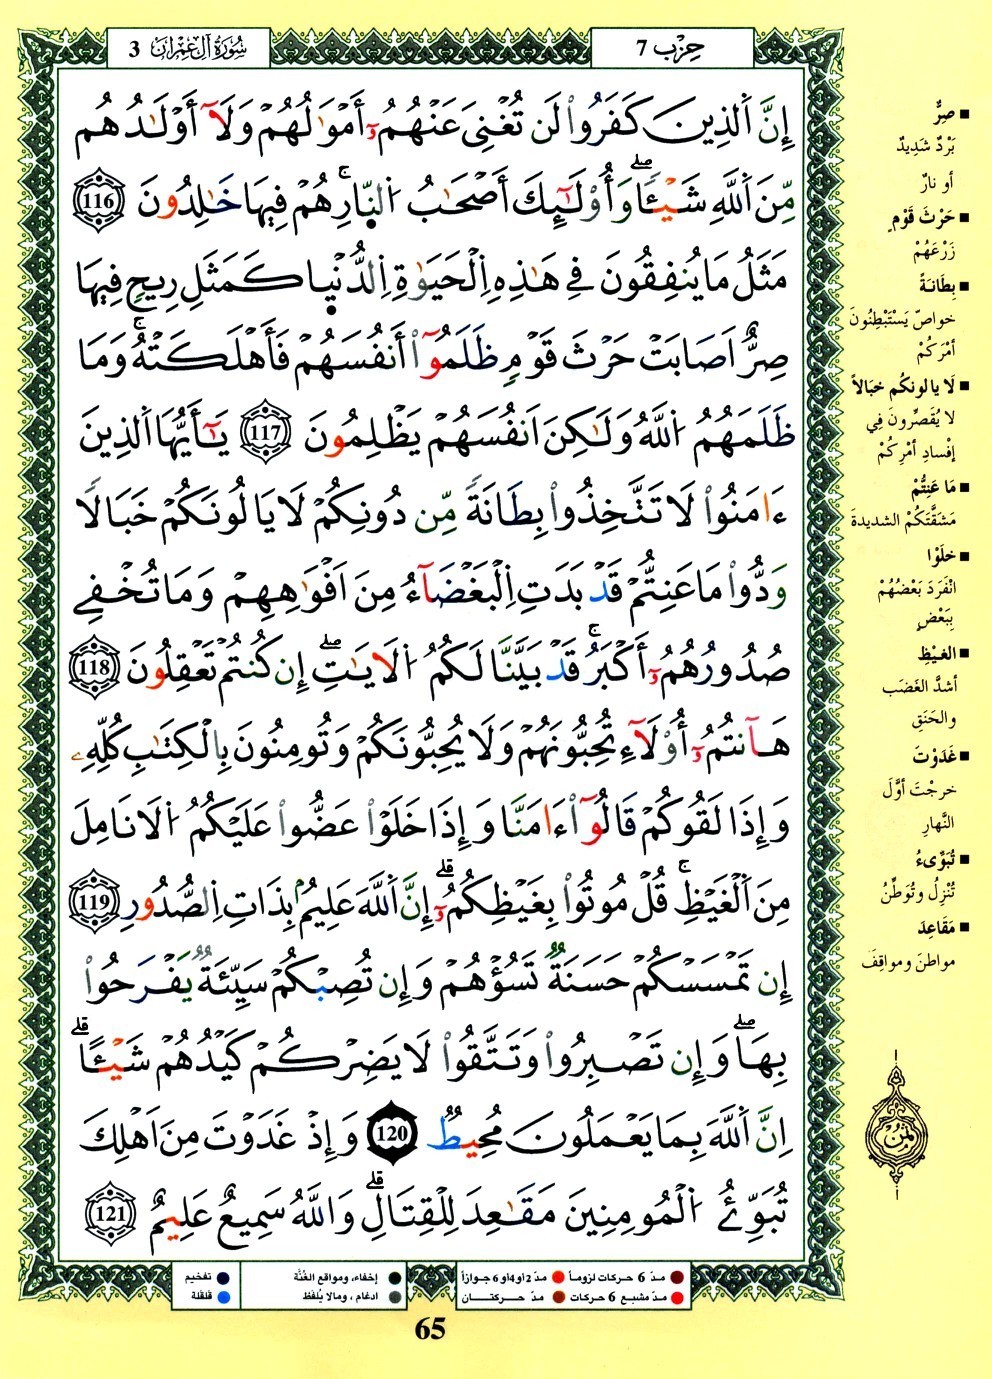 سُورَةُ آلِ عِمْرَانَ 3
حِزْب 7
إِنَّ اَلذِينَ كَفَرُواْ لَن تُغْنِيَ عَنْهُمُۥٓ أَمْوَٰلُهُمْ وَلَآ أَوْلَٰدُهُم
مِّنَ اَللَّهِ شَيْـٔاًۖ وَأُوْلَٰٓئِكَ أَصْحَٰبُ اُلنّ۪ارِۚ هُمْ فِيهَا خَٰلِدُونَ 116
مَثَلُ مَا يُنفِقُونَ فِي هَٰذِهِ اِلْحَيَوٰةِ اِلدُّنْي۪ا كَمَثَلِ رِيحٖ فِيهَا
صِرٌّ اَصَابَتْ حَرْثَ قَوْمٖ ظَلَمُوٓاْ أَنفُسَهُمْ فَأَهْلَكَتْهُۚ وَمَا
ظَلَمَهُمُ اُللَّهُ وَلَٰكِنَ اَنفُسَهُمْ يَظْلِمُونَ 117 يَٰٓأَيُّهَا اَلذِينَ
ءَامَنُواْ لَا تَتَّخِذُواْ بِطَانَةٗ مِّن دُونِكُمْ لَا يَالُونَكُمْ خَبَالاٗ
وَدُّواْ مَا عَنِتُّمْ قَدْ بَدَتِ اِلْبَغْضَآءُ مِنَ اَفْوَٰهِهِمْ وَمَا تُخْفِي
صُدُورُهُمُۥٓ أَكْبَرُۚ قَدْ بَيَّنَّا لَكُمُ اُلَايَٰتِۖ إِن كُنتُمْ تَعْقِلُونَ 118
هَآنتُمُۥٓ أُوْلَآءِ تُحِبُّونَهُمْ وَلَا يُحِبُّونَكُمْ وَتُومِنُونَ بِالْكِتَٰبِ كُلِّهِۦ
وَإِذَا لَقُوكُمْ قَالُوٓاْ ءَامَنَّا وَإِذَا خَلَوْاْ عَضُّواْ عَلَيْكُمُ اُلَانَامِلَ
مِنَ اَلْغَيْظِۚ قُلْ مُوتُواْ بِغَيْظِكُمُۥٓۖ إِنَّ اَللَّهَ عَلِيمُۢ بِذَاتِ اِلصُّدُورِ 119
إِن تَمْسَسْكُمْ حَسَنَةٞ تَسُؤْهُمْ وَإِن تُصِبْكُمْ سَيِّئَةٞ يَفْرَحُواْ
بِهَاۖ وَإِن تَصْبِرُواْ وَتَتَّقُواْ لَا يَضِرْكُمْ كَيْدُهُمْ شَيْـًٔاۖ
اِنَّ اَللَّهَ بِمَا يَعْمَلُونَ مُحِيطٞ 120 وَإِذْ غَدَوْتَ مِنَ اَهْلِكَ
تُبَوِّئُ اُلْمُومِنِينَ مَقَٰعِدَ لِلْقِتَالِۖ وَاللَّهُ سَمِيعٌ عَلِيمٌ 121
صِرٌّ
بَرْدٌ شَدِيدٌ
أو نارٌ
حَرْثَ قَوْمٍ
زَرْعَهُمْ
بِطَانَةً
خواصّ يَسْتَبْطِنُونَ
أمْرَكُمْ
لَا يالونكُم خبَالاً
لا يُقَصِّرُونَ فِي
إفْسادِ أمْرِكُمْ
مَا عَنِتُّمْ
مَشَقَّتَكُمْ الشديدةَ
خلَوْا
انْفَرَدَ بَعْضُهُمْ
بِبَعْضٍ
الغيْظِ
أشدَّ الغَضَب
والحَنَقِ
غَدَوْتَ
خرجْتَ أوَّلَ
النَّهارِ
تُبَوِّىءُ
تُنْزِلُ وتُوَطِّنُ
مَقَاعِدَ
مواطنَ ومواقِفَ
ثمن
مدّ 6 حركات لزوماً مدّ 2 أو 4 أو 6 جوازاً
مدّ مشبع 6 حركات مدّ حركتان
إخفاء، ومواقع الغُنَّة
ادغام، ومالا يُلفَظ
تفخيم
قلقلة
65